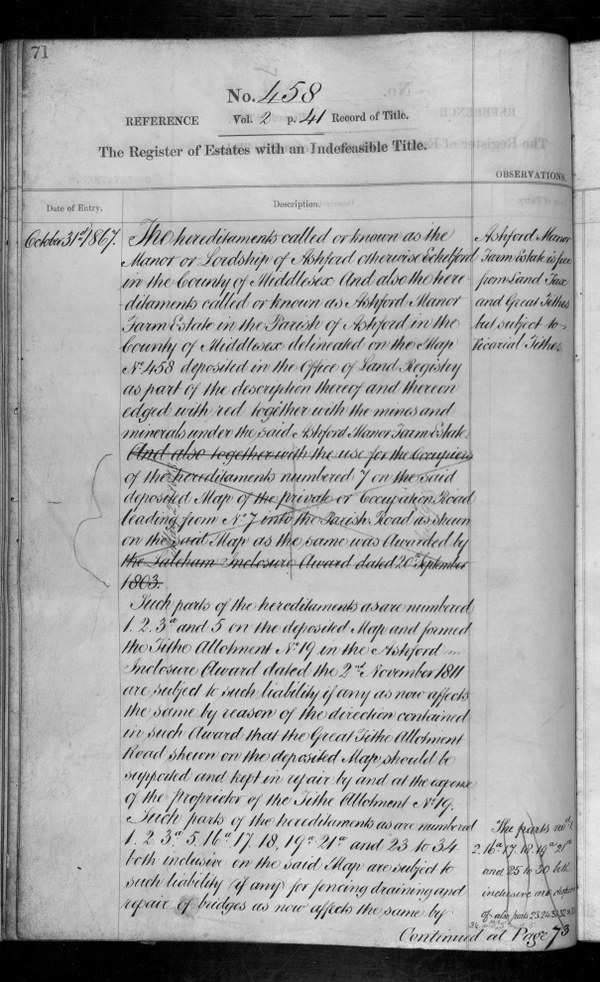 71
No. 458
REFERENCE Vol. 2 p. 41 Record of Title.
The Register of Estates with an Indefeasible Title.
OBSERVATIONS.
Date of Entry.
Description.
October 31st 1867.
The hereditaments called or known as the
Manor or Lordship of Ashford otherwise Echelford
in the County of Middlesex And also the here-
ditaments called or known as Ashford Manor
Farm Estate in the Parish of Ashford in the
County of Middlesex delineated on the Map
No. 458 deposited in the Office of Land Registry
as part of the description thereof and thereon
edged with red together with the mines and
minerals under the said Ashford Manor Farm Estate.
And also together with the use for the Occupiers
of the hereditaments numbered 7 on the said
deposited Map of the private or Occupation Road
leading from No. 7 into the Parish Road as shewn
on the said Map as the same was Awarded by
the Laleham Inclosure Award dated 20th September
1803.
Such parts of the hereditaments as are numbered
1. 2. 3a and 5 on the deposited Map and formed
the Tithe Allotment No. 19 in the Ashford
Inclosure Award dated the 2nd November 1811
are subject to such liability if any as now affects
the same by reason of the direction contained
in such Award that the Great Tithe Allotment
Road shewn on the deposited Map should be
supported and kept in repair by and at the expense
of the Proprietor of the Tithe Allotment No. 19.
Such parts of the hereditaments as are numbered
1. 2. 3a. 5. 16a. 17. 18. 19a 21a and 23 to 34
both inclusive on the said Map are subject to
such liability (if any) for fencing draining and
repair of bridges as now affects the same by
Continued at Page 73
Ashford Manor
Farm Estate is free
from Land Tax
and Great Tithes
but subject to
Vicarial Tithes
The parts nod. 1.
2. 16a. 17. 18. 19a 21a
and 25 to 30 both
inclusive are disposed
of also parts 23. 24. 31. 32